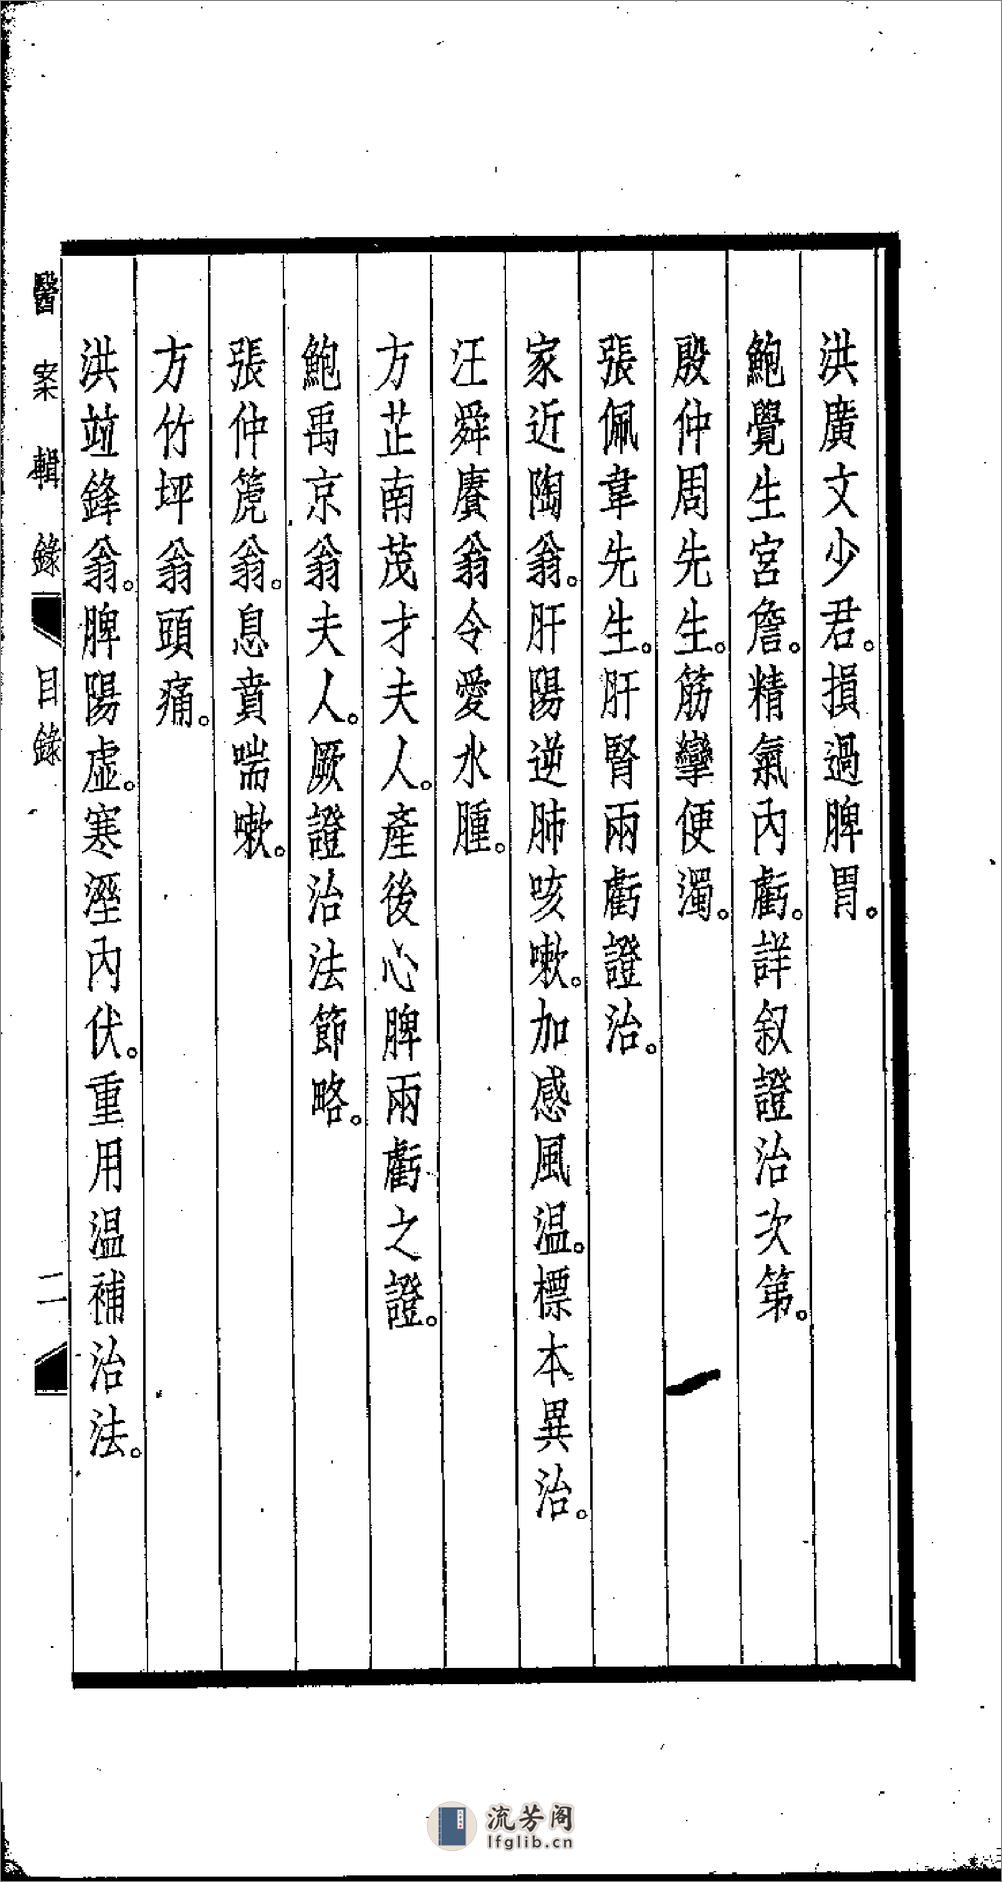 洪廣文少君。損過脾胃。
鮑覺生宮詹。精氣內虧。詳叙證治次第。
殷仲周先生。筋攣便濁。
張佩韋先生。肝腎兩虧證治。
家近陶翁。肝陽逆肺咳嗽。加感風温。標本異治。
汪舜賡翁令愛水腫。
方芷南茂才夫人。產後心脾兩虧之證。
鮑禹京翁夫人。厥證治法節略。
張仲篪翁。息賁喘嗽。
方竹坪翁頭痛。
洪竝鋒翁。脾陽虛。寒溼內伏。重用温補治法。
醫案輯錄 目錄 二
流芳阁
lfglib.cn